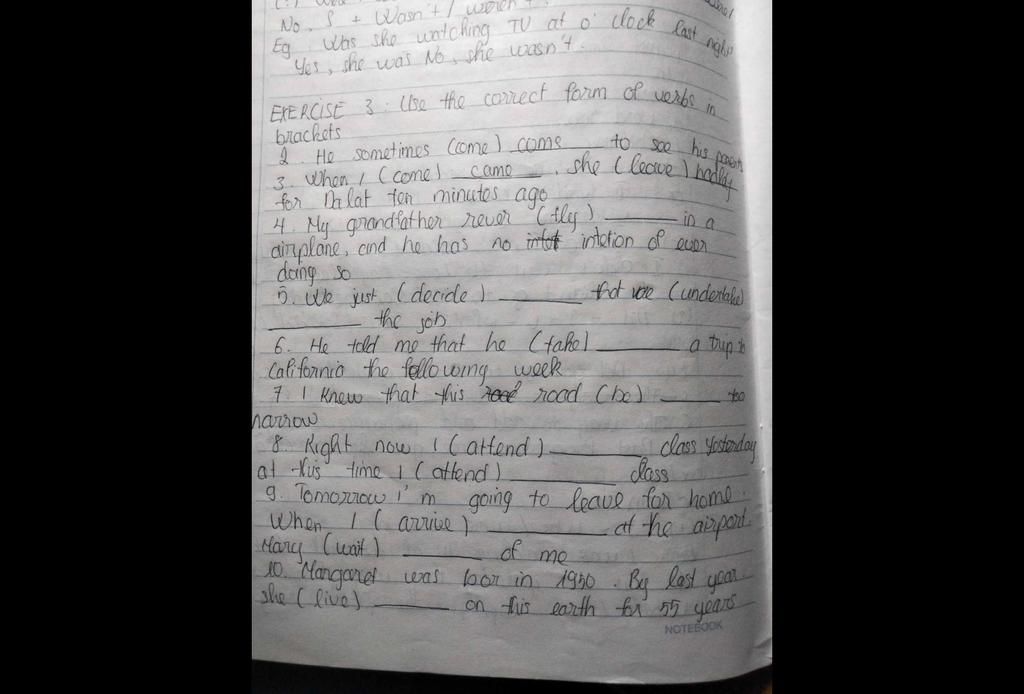 No, S + Wasn't /
Eg Was she watching TV at o' clock last night
Yes, she was No, she wasn't.
EXERCISE 3: Use the correct form of verbs in
brackets
2. He sometimes (come) come to see his parents
3. When I (come) came, she (leave) had
for Dalat ten minutes ago
4. My grandfather never (fly) ______ in a
airplane, and he has no intetion of ever
doing so
5. We just (decide) ______ that we (undertake)
______ the job
6. He told me that he (take) ______ a trip to
California the following week
7 I knew that this road (be) ______ too
narrow
8. Right now I (attend) ______ class yesterday
at this time I (attend) ______ class
9. Tomorrow I'm going to leave for home.
When I (arrive) ______ at the airport.
Mary (wait) ______ of me
10. Margaret was bor in 1950. By last year
she (live) ______ on this earth for 55 years
NOTEBOOK